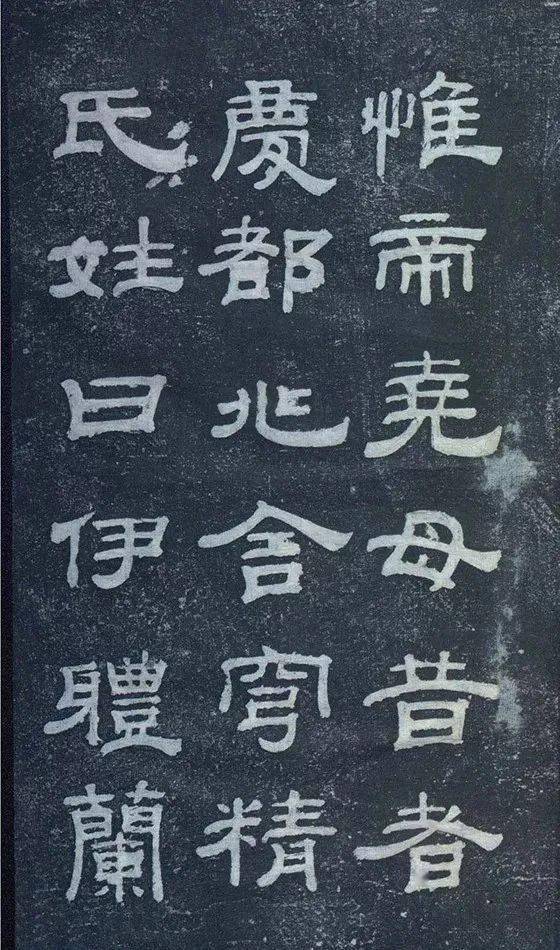 惟帝堯母昔者
慶都兆舍穹精
氏姓曰伊體蘭